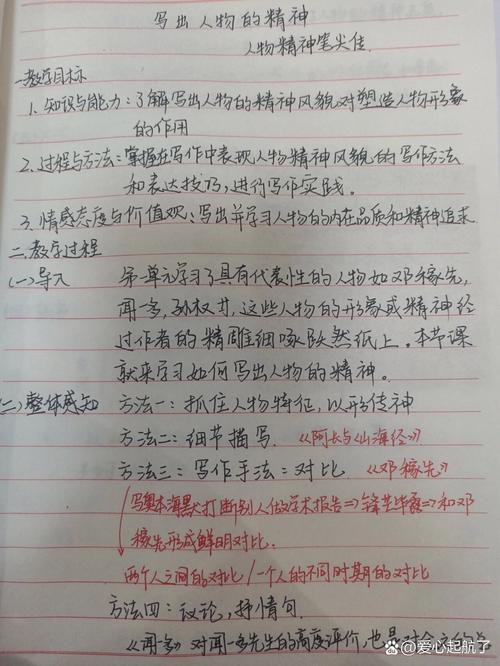 写出人物的精神
人物精神笔尖住
一.教学目标
1.知识与能力:了解写出人物的精神风貌对塑造人物形象
的作用
2.过程与方法:掌握在写作中表现人物精神风貌的写作方法
和表达技巧,进行写作实践。
3.情感态度与价值观:写出并学习人物的内在品质和精神追求
二.教学过程
(一)导入 第一单元学习了具有代表性的人物如邓稼先,
闻一多,孙权等,这些人物的形象或精神经
过作者的精雕细啄跃然纸上。本节课
就来学习如何写出人物的精神。
(二)整体感知 方法一:抓住人物特征,以形传神
方法二:细节描写.《阿长与《山海经》》
方法三:写作手法:对比 《邓稼先》
写奥本海默打断别人做学术报告⇒锋芒毕露⇒和邓
稼先形成鲜明对比.
两个人之间的对比/一个人的不同时期的对比
方法四:议论,抒情句.
《闻一多》对闻一多先生的高度评价,也是对全文的总
@爱心起航了